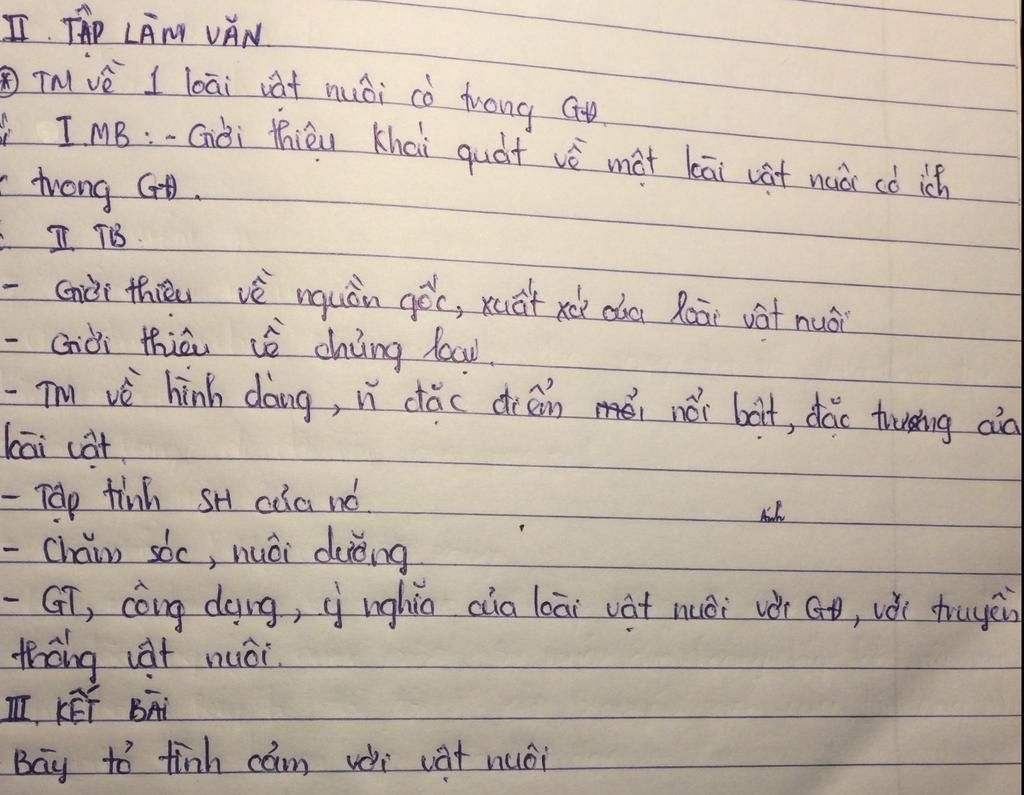 II. TẬP LÀM VĂN
* TM về 1 loài vật nuôi có trong GĐ.
I. MB: - Giới thiệu khái quát về một loài vật nuôi có ích
trong GĐ.
II TB.
- Giới thiệu về nguồn gốc, xuất xứ của loài vật nuôi
- Giới thiệu về chủng loại.
- TM về hình dáng, ~ đặc điểm nổi bật, đặc trưng của
loài vật.
- Tập tính SH của nó.
- Chăm sóc, nuôi dưỡng
- GT, công dụng, ý nghĩa của loài vật nuôi với GĐ, với truyền
thống vật nuôi.
III. KẾT BÀI
Bày tỏ tình cảm với vật nuôi